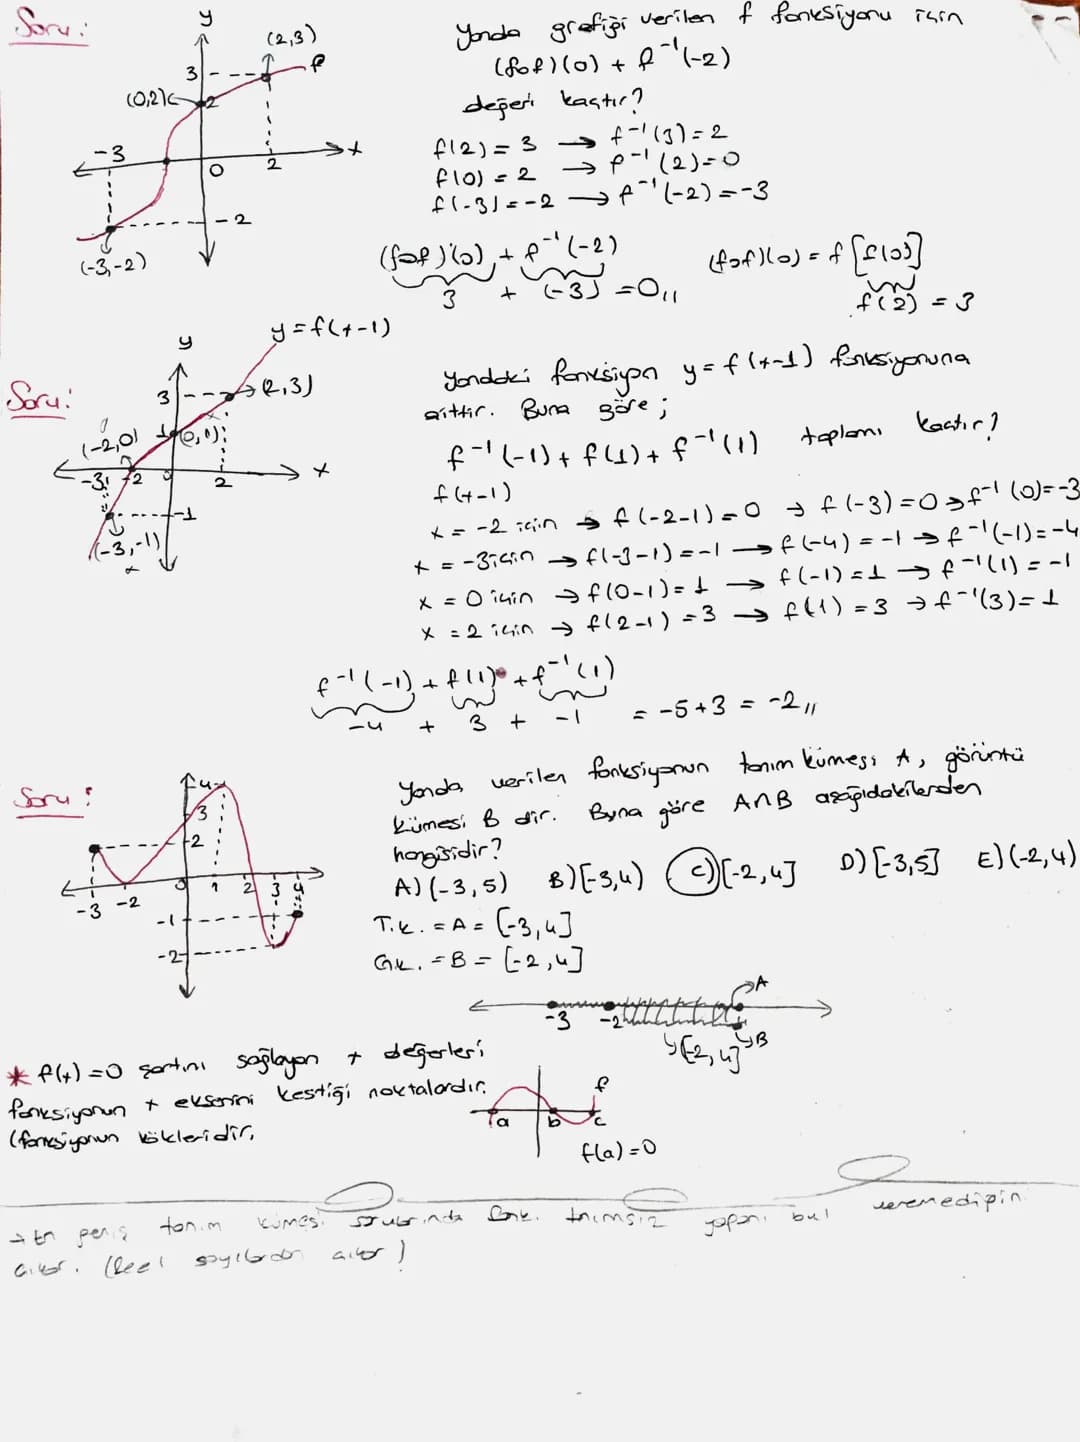 Soru:
Yanda grafiği verilen f fonksiyonu için
(fof)(0) + f⁻¹(-2)
değeri kaçtır?
f(2) = 3 → f⁻¹(3) = 2
f(0) = 2 → f⁻¹(2) = 0
f(-3) = -2 → f⁻¹(-2) = -3
y
(2,3)
f
3
(0,2)
2
-3
x
0
2
-2
(-3,-2)
(fof)(0) + f⁻¹(-2)
3 + (-3) = 0,,
(fof)(0) = f[f(0)]
f(2) = 3
Soru:
y = f(x-1)
y
3
(2,3)
(-2,0)
1
(0,1)
-3
-2
0
2
x
-1
(-3,-1)
Yandaki fonksiyon y = f(x-1) fonksiyonuna
aittir. Buna göre;
f⁻¹(-1) + f(1) + f⁻¹(1) toplamı kaçtır?
f(x-1)
x = -2 için → f(-2-1) = 0 → f(-3) = 0 → f⁻¹(0) = -3
x = -3 için → f(-3-1) = -1 → f(-4) = -1 → f⁻¹(-1) = -4
x = 0 için → f(0-1) = 1 → f(-1) = 1 → f⁻¹(1) = -1
x = 2 için → f(2-1) = 3 → f(1) = 3 → f⁻¹(3) = 1
f⁻¹(-1) + f(1) + f⁻¹(1)
-4 + 3 + -1 = -5+3 = -2,,
Soru:
4
3
2
0
1
2
3
4
-3
-2
-1
-2
Yanda verilen fonksiyonun tanım kümesi A, görüntü
kümesi B dir. Buna göre A∩B aşağıdakilerden
hangisidir?
A) (-3,5) B) [-3,4) C) [-2,4] D) [-3,5] E) (-2,4)
T.k. = A = [-3,4]
G.k. = B = [-2,4]
A
-3
-2
B
[-2,4]
* f(x) = 0 şartını sağlayan x değerleri
fonksiyonun x eksenini kestiği noktalardır.
(fonksiyonun kökleridir.
f
a
b
c
f(a) = 0
→ En geniş tanım kümesi sorularında fonk. tnımsız yapanı bul
çıkar. (Reel sayılardan çıkar)